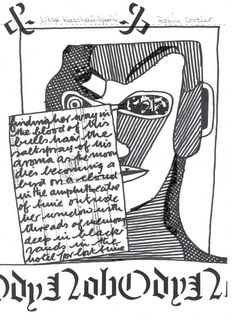 Litsa Spathi Robin Crozier
finding her way in
the blood of his
bulls hair the
salt spray of his
aroma as demon
dies becoming a
bird on a cloud
in the amphitheatre
of time outside
her with
threads of memory
deep in black
sands in the
hotel for lost time
OdyNobOdyN